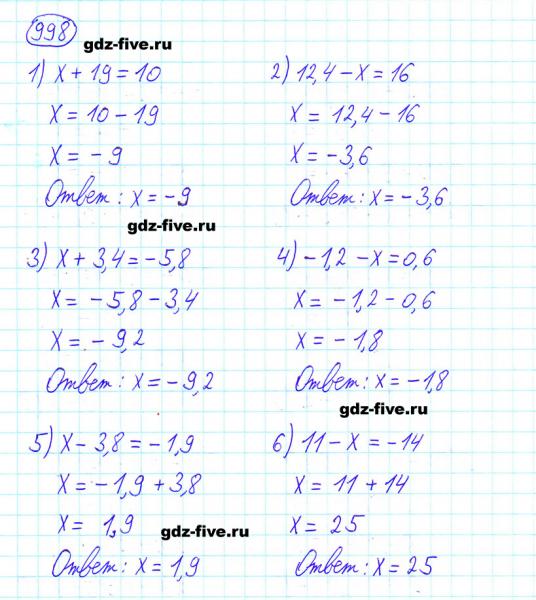 998
gdz-five.ru
1) x + 19 = 10
x = 10 - 19
x = - 9
Ответ: x = - 9
2) 12,4 - x = 16
x = 12,4 - 16
x = - 3,6
Ответ: x = - 3,6
gdz-five.ru
3) x + 3,4 = - 5,8
x = - 5,8 - 3,4
x = - 9,2
Ответ: x = - 9,2
4) - 1,2 - x = 0,6
x = - 1,2 - 0,6
x = - 1,8
Ответ: x = - 1,8
gdz-five.ru
5) x - 3,8 = - 1,9
x = - 1,9 + 3,8
x = 1,9
gdz-five.ru
Ответ: x = 1,9
6) 11 - x = - 14
x = 11 + 14
x = 25
Ответ: x = 25